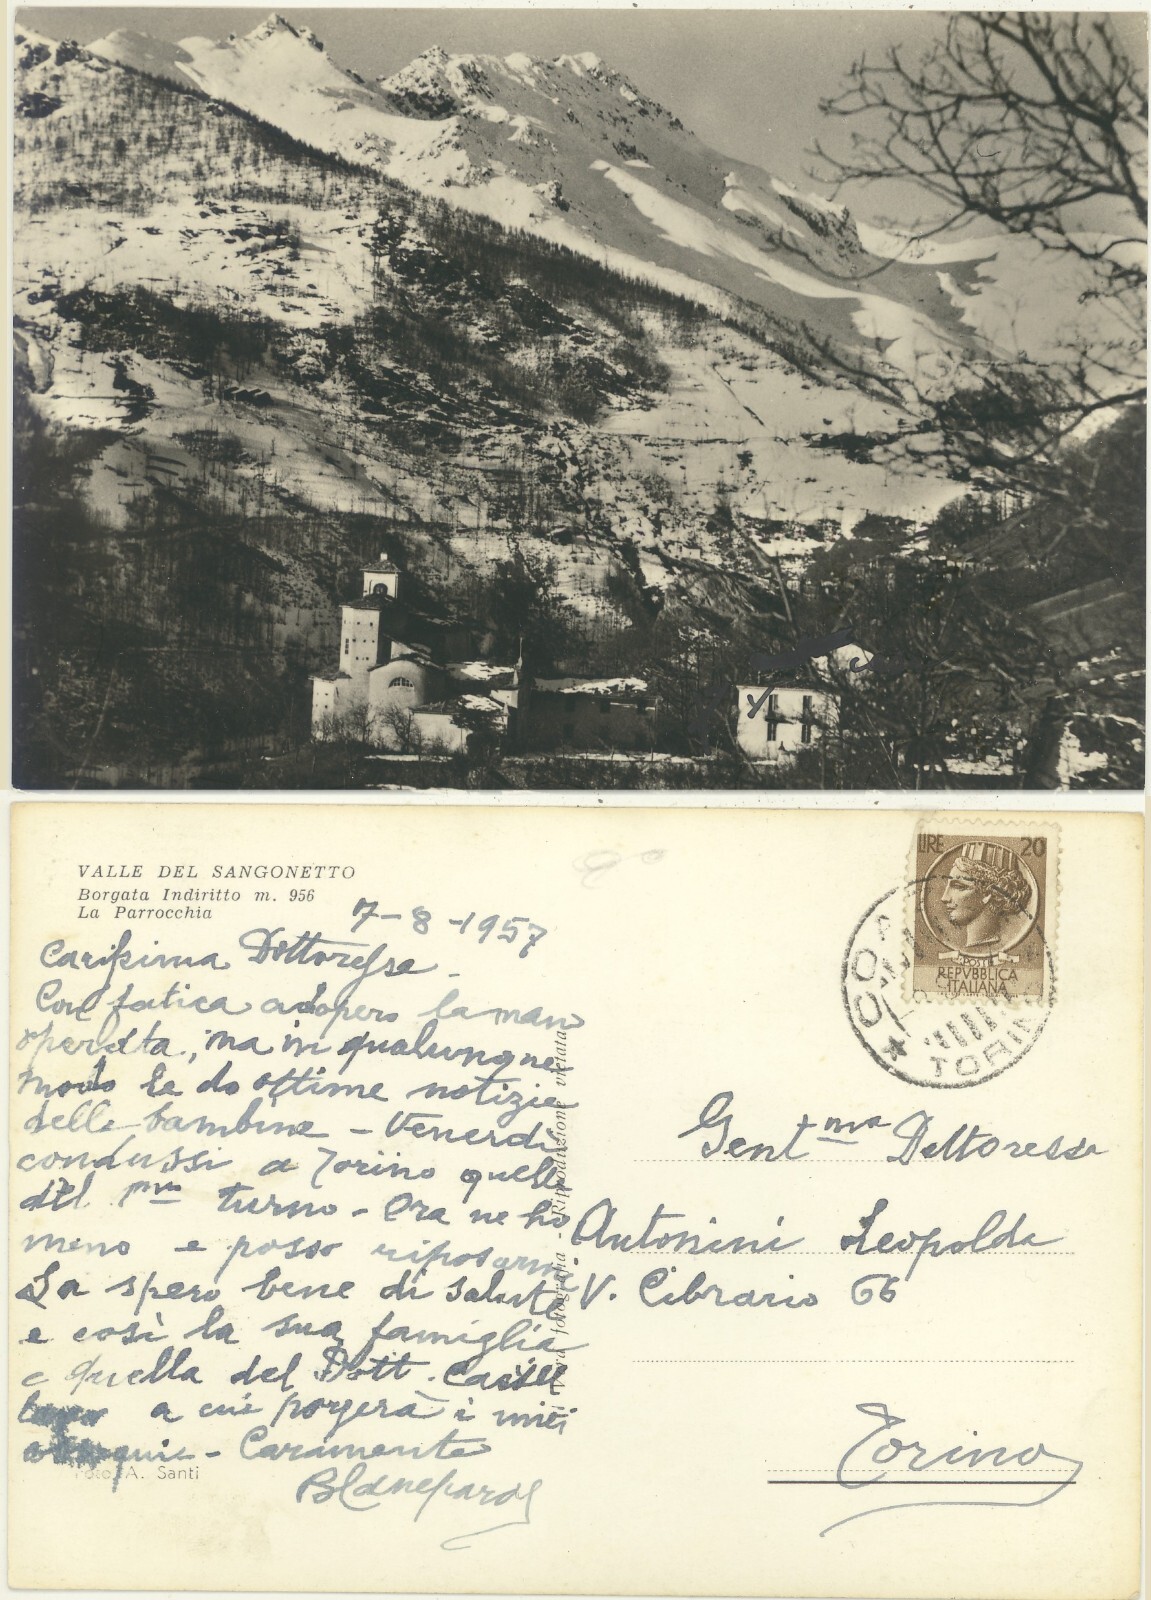 VALLE DEL SANGONETTO
Borgata Indiritto m. 956
La Parrocchia
7-8-1957
Carissima Dottoressa -
Con fatica adopero la mano
operata, ma in qualunque
modo Le do ottime notizie
delle bambine - Venerdì
condussi a Torino quelle
del pmo turno - Ora ne ho
meno e posso riposarmi
La spero bene di salute
e così la sua famiglia
e quella del Dott.
a cui porgerà i miei
Caramente
Foto A. Santi
Vera fotografia - Riproduzione vietata
LIRE 20
POSTE
REPVBBLICA
ITALIANA
COAZZE
TORINO
Gentma Dottoressa
Antonini Leopolda
V. Cibrario 66
Torino